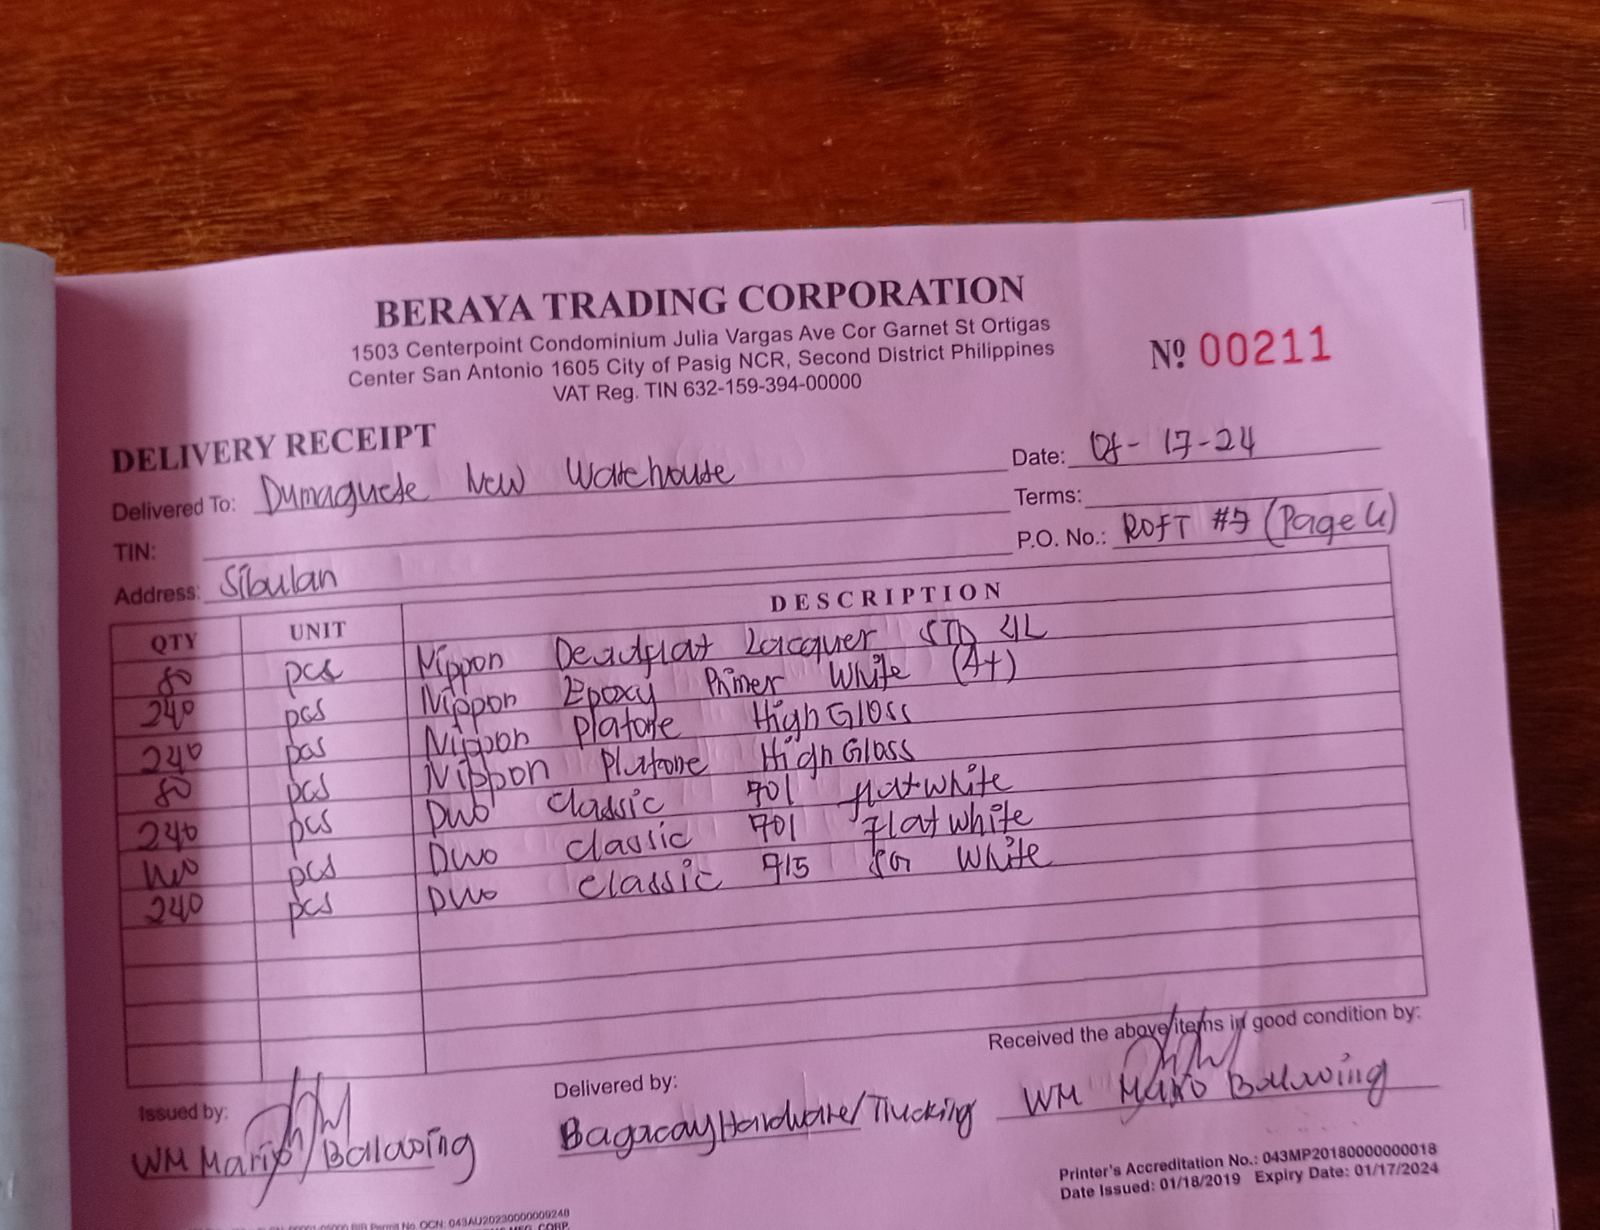 BERAYA TRADING CORPORATION
1503 Centerpoint Condominium Julia Vargas Ave Cor Garnet St Ortigas
Center San Antonio 1605 City of Pasig NCR, Second District Philippines
VAT Reg. TIN 632-159-394-00000
Nº 00211
DELIVERY RECEIPT
Date: 17-24
Delivered To: Dumaguete New Warehouse
Terms:
TIN:
P.O. No.: ROFT (Page 4)
Address: Sibulan
QTY UNIT DESCRIPTION
80 pcs Nippon Deadflat Lacquer STD 4L
240 pcs Nippon Epoxy Primer White
240 pcs Nippon Platone High Gloss
80 pcs Nippon Platone High Gloss
240 pcs Duo Classic 701 flat white
pcs Duo Classic 701 Flat White
240 pcs Duo Classic 715 SG White
Issued by:
WM Mario Balawing
Delivered by:
Bagacay Hardware/Trucking
Received the above items in good condition by:
WM Mario Balawing
Printer's Accreditation No.: 043MP20180000000018
Date Issued: 01/18/2019 Expiry Date: 01/17/2024
BIR Permit No. OCN: 043AU20230000009248
MFG. CORP.